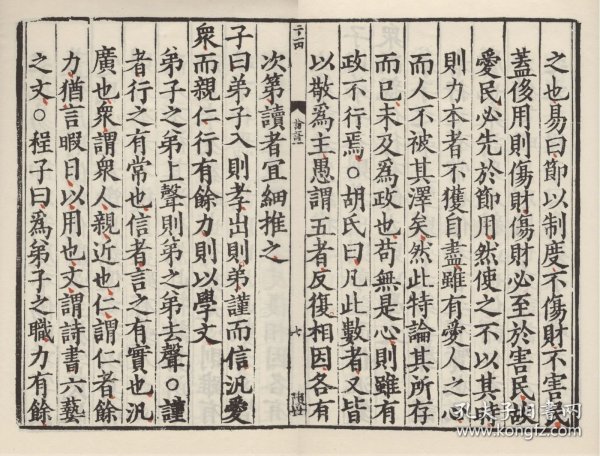 之也易曰節以制度不傷財不害民
蓋侈用則傷財傷財必至於害民故
愛民必先於節用然使之不以其時
則力本者不獲自盡雖有愛人之心
而人不被其澤矣然此特論其所存
而已未及為政也苟無是心則雖有
政不行焉○胡氏曰凡此數者又皆
以敬為主愚謂五者反復相因各有
二百四
論語一
七
次第讀者宜細推之
子曰弟子入則孝出則弟謹而信汎愛
衆而親仁行有餘力則以學文
弟子之弟上聲則弟之弟去聲○謹
者行之有常也信者言之有實也汎
廣也衆謂衆人親近也仁謂仁者餘
力猶言暇日以用也文謂詩書六藝
之文○程子曰為弟子之職力有餘
孔夫子旧书网